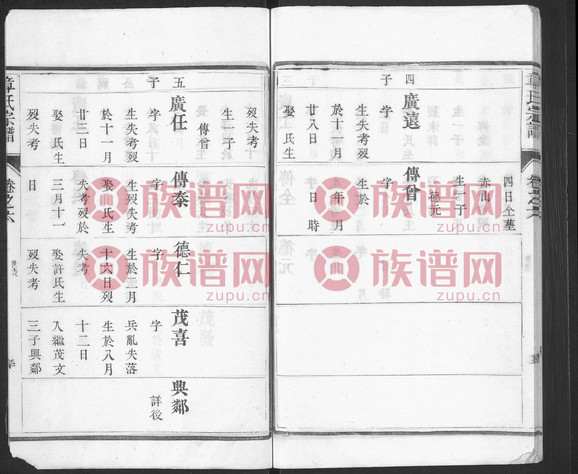 章氏宗譜
卷之六
四日仝墓
赤山
生一子
德元
傳曾
字
生於
年月
日時
四子
廣遠
字
於十一月
廿八日
生失考歿
娶氏生
歿失考
生一子
傳曾
五子
廣任
字
生失考歿
於十一月
廿三日
娶氏生
歿失考
傳泰
字
生歿失考
娶氏生
失考歿於
三月十一
日
德仁
字
生於三月
十六日歿
失考
娶許氏生
歿失考
茂喜
字
兵亂失落
生於八月
十二日
入繼茂文
三子興鄰
興鄰
詳後
章氏宗譜
卷之六
族谱网
zupu.cn
族谱网
zupu.cn
族谱网
zupu.cn
族谱网
zupu.cn
族谱网
zupu.cn
族谱网
zupu.cn